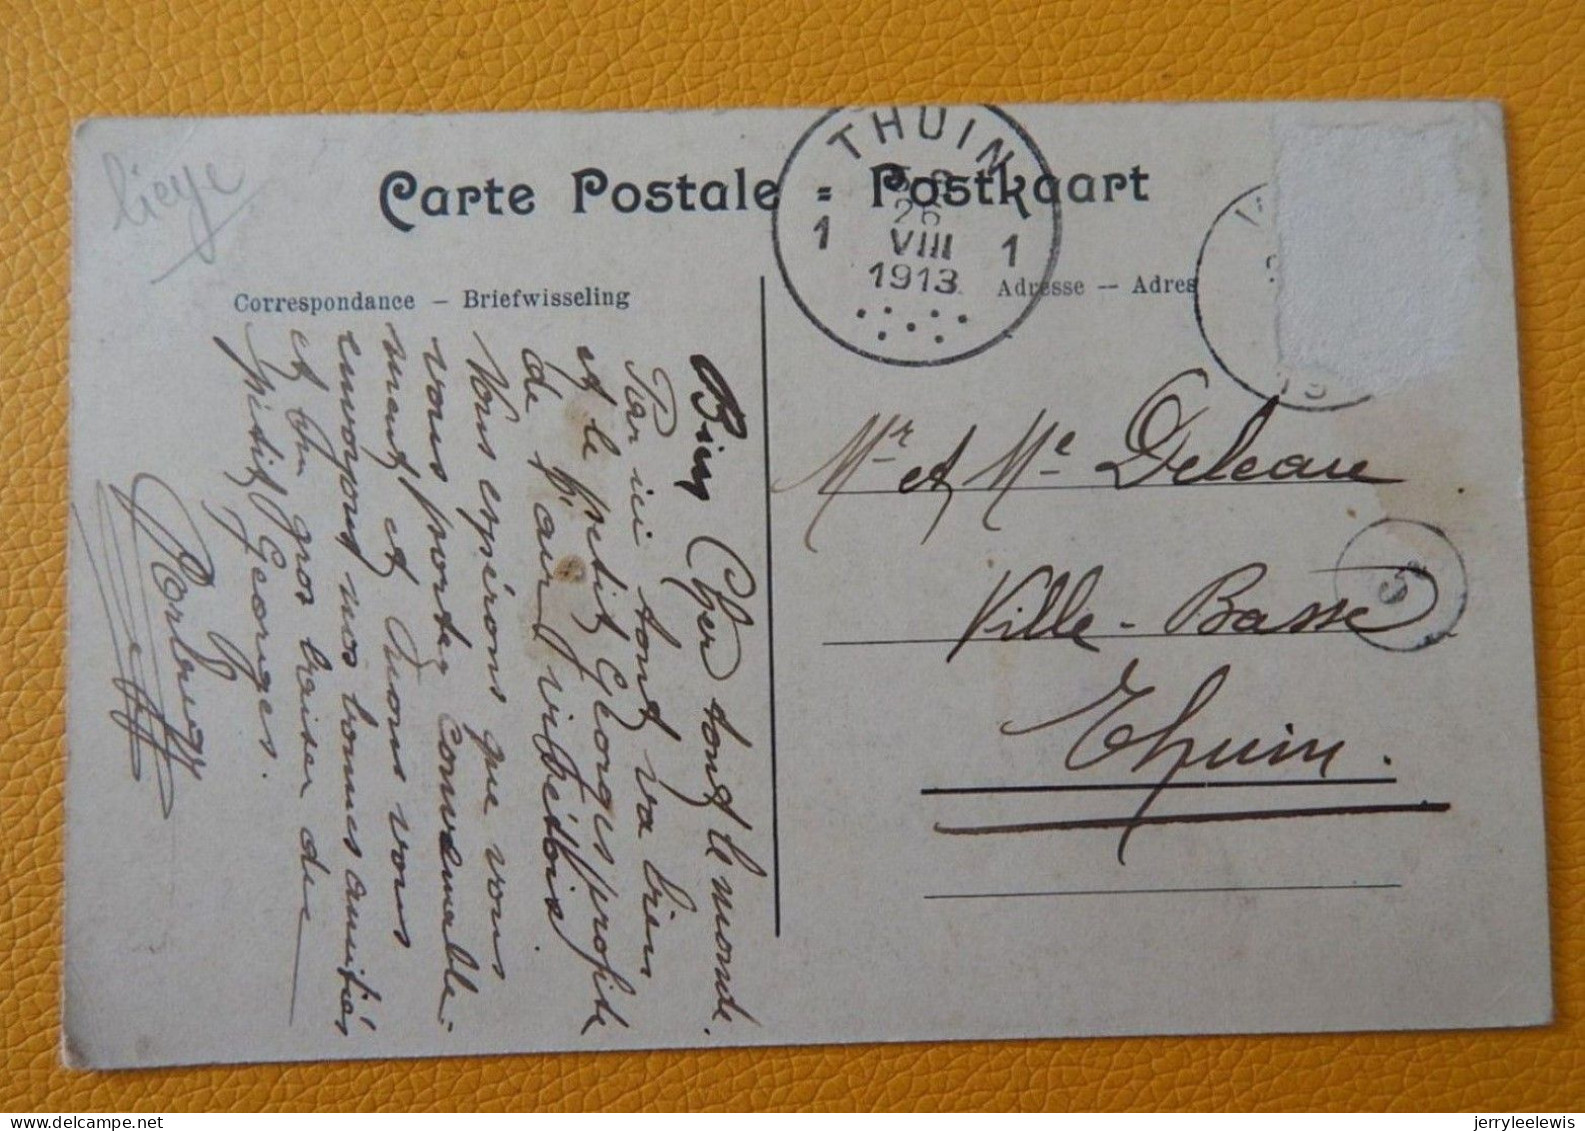 liege
Carte Postale = Postkaart
THUIN
26
1 VIII 1
1913
Correspondance – Briefwisseling
Adresse – Adres
19
Bien Cher tout le monde.
Par ici tout va bien
et le petit Georges profite
de l'air
Vous espérons que vous
vous portez convenable-
ment et Nous vous
envoyons nos bonnes amitiés
et un gros baiser du
petit Georges.
Mr et Me Deleau
Ville-Basse
Thuin.
delcampe.net
jerryleelewis